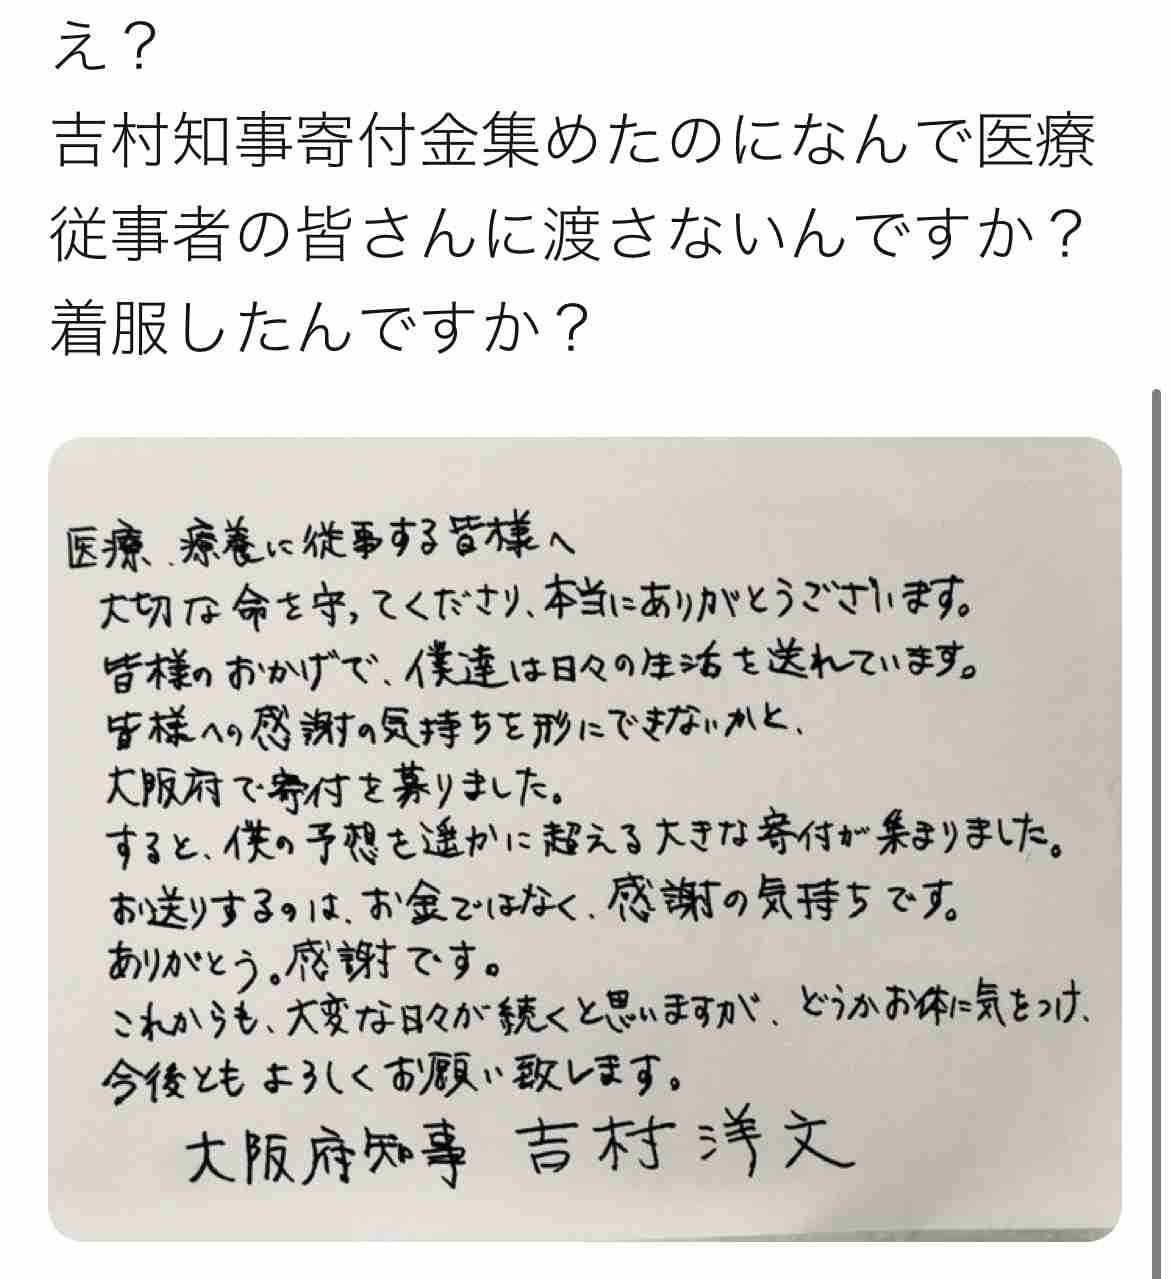 え？
吉村知事寄付金集めたのになんで医療
従事者の皆さんに渡さないんですか？
着服したんですか？
医療、療養に従事する皆様へ
大切な命を守ってくださり、本当にありがとうございます。
皆様のおかげで、僕達は日々の生活を送れています。
皆様への感謝の気持ちを形にできないかと、
大阪府で寄付を募りました。
すると、僕の予想を遥かに超える大きな寄付が集まりました。
お送りするのは、お金ではなく、感謝の気持ちです。
ありがとう。感謝です。
これからも、大変な日々が続くと思いますが、どうかお体に気をつけ、
今後ともよろしくお願い致します。
大阪府知事 吉村洋文